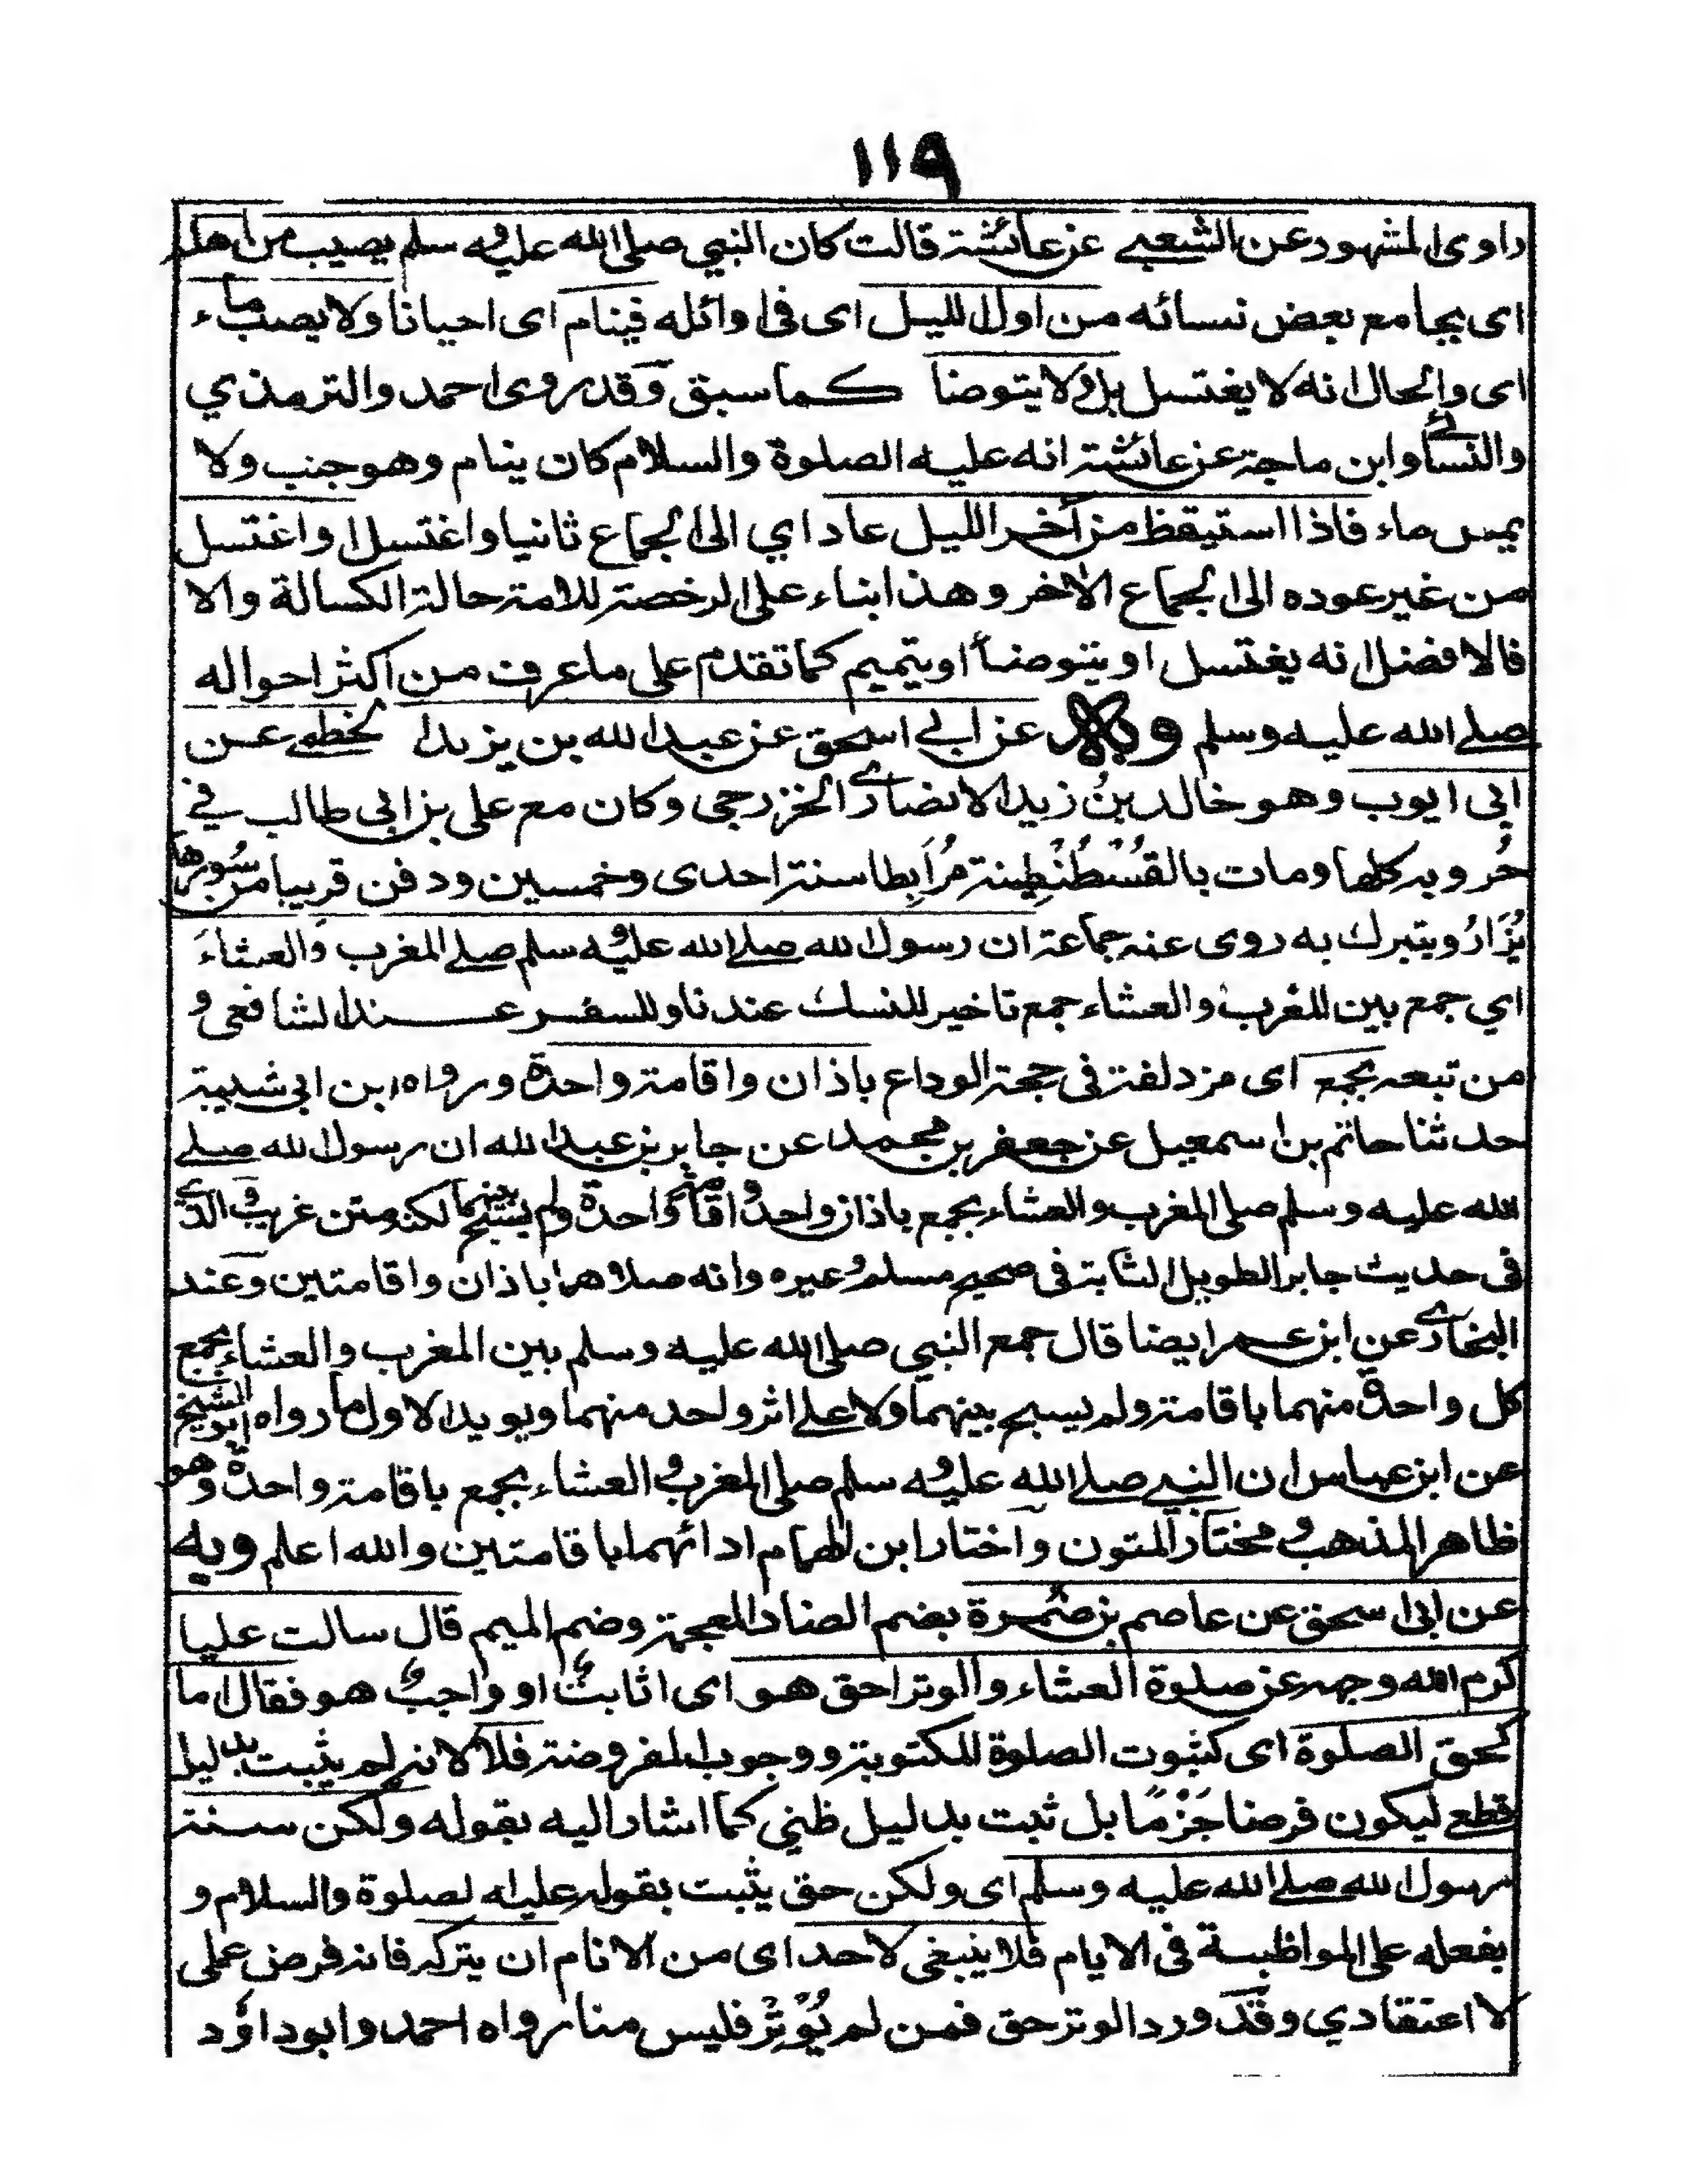 ١١٩
راوى المشهور عن الشعبى عن عائشة قالت كان النبي صلى الله عليه وسلم يصيب من اهله
اى يجامع بعض نسائه من اول الليل اى فى اوائله فينام اى احيانا ولا يصيب ماء
اى والحال انه لا يغتسل بل ولا يتوضا كما سبق وقد روى احمد والترمذي
والنسائى وابن ماجة عن عائشة انه عليه الصلوة والسلام كان ينام وهو جنب ولا
يمس ماء فاذا استيقظ من آخر الليل عاد اي الى الجماع ثانيا واغتسل او اغتسل
من غير عوده الى الجماع الاخر وهذا بناء على الرخصة للامة حالة الكسالة والا
فالافضل انه يغتسل او يتوضأ او يتميم كما تقدم على ما عرف من اكثر احواله
صلى الله عليه وسلم وبه عن ابى اسحق عن عبد الله بن يزيد الخطمى عن
ابى ايوب وهو خالد بن زيد الانصارى الخزرجى وكان مع على بن ابى طالب في
حُروبه كلها ومات بالقُسْطُنْطِينة مُرَابِطا سنة احدى وخمسين ودفن قريبا من سُورها
يُزَارُ ويتبرك به روى عنه جماعة ان رسول الله صلى الله عليه وسلم صلى المغرب والعشاءَ
اي جمع بين المغرب والعشاء جمع تاخير للنسك عندنا وللسفر عند الشافعى و
من تبعه بجمع اى مزدلفة فى حجة الوداع باذان واقامة واحدة ورواه ابن ابى شيبة
حدثنا حاتم بن اسمعيل عن جعفر بن محمد عن جابر بن عبد الله ان رسول الله صلى
الله عليه وسلم صلى المغرب والعشاء بجمع باذان واحد واقامة واحدة ولم يسبح بينهما لكنه متن غريب والذى
فى حديث جابر الطويل الثابت فى صحيح مسلم وغيره وانه صلاهما باذان واقامتين وعند
البخارى عن ابن عمر ايضا قال جمع النبي صلى الله عليه وسلم بين المغرب والعشاء بجمع
كل واحدة منهما باقامة ولم يسبح بينهما ولا على اثر واحد منهما ويويد الاول ما رواه ابو الشيخ
عن ابن عباس ان النبى صلى الله عليه وسلم صلى المغرب والعشاء بجمع باقامة واحدة وهو
ظاهر المذهب ومختار المتون واختار ابن الهمام ادائهما باقامتين والله اعلم وبه
عن ابى اسحق عن عاصم بن ضمرة بضم الضاد المعجمة وضم الميم قال سالت عليا
كرم الله وجهه عن صلوة العشاء والوتر احق هو اى اثابتٌ او واجبٌ هو فقال اما
كحق الصلوة اى كثبوت الصلوة المكتوبة ووجوب المفروضة فلا لانه لم يثبت بدليل
قطعى ليكون فرضا جَزْمًا بل ثبت بدليل ظني كما اشار اليه بقوله ولكن سنة
رسول الله صلى الله عليه وسلم اى ولكن حق يثبت بقوله عليه الصلوة والسلام و
بفعله على المواظبة فى الايام فلا ينبغى لاحد اى من الانام ان يتركه فانه فرض عملى
لا اعتقادي وقد ورد الوتر حق فمن لم يُوْتِرْ فليس منا رواه احمد وابو داؤد